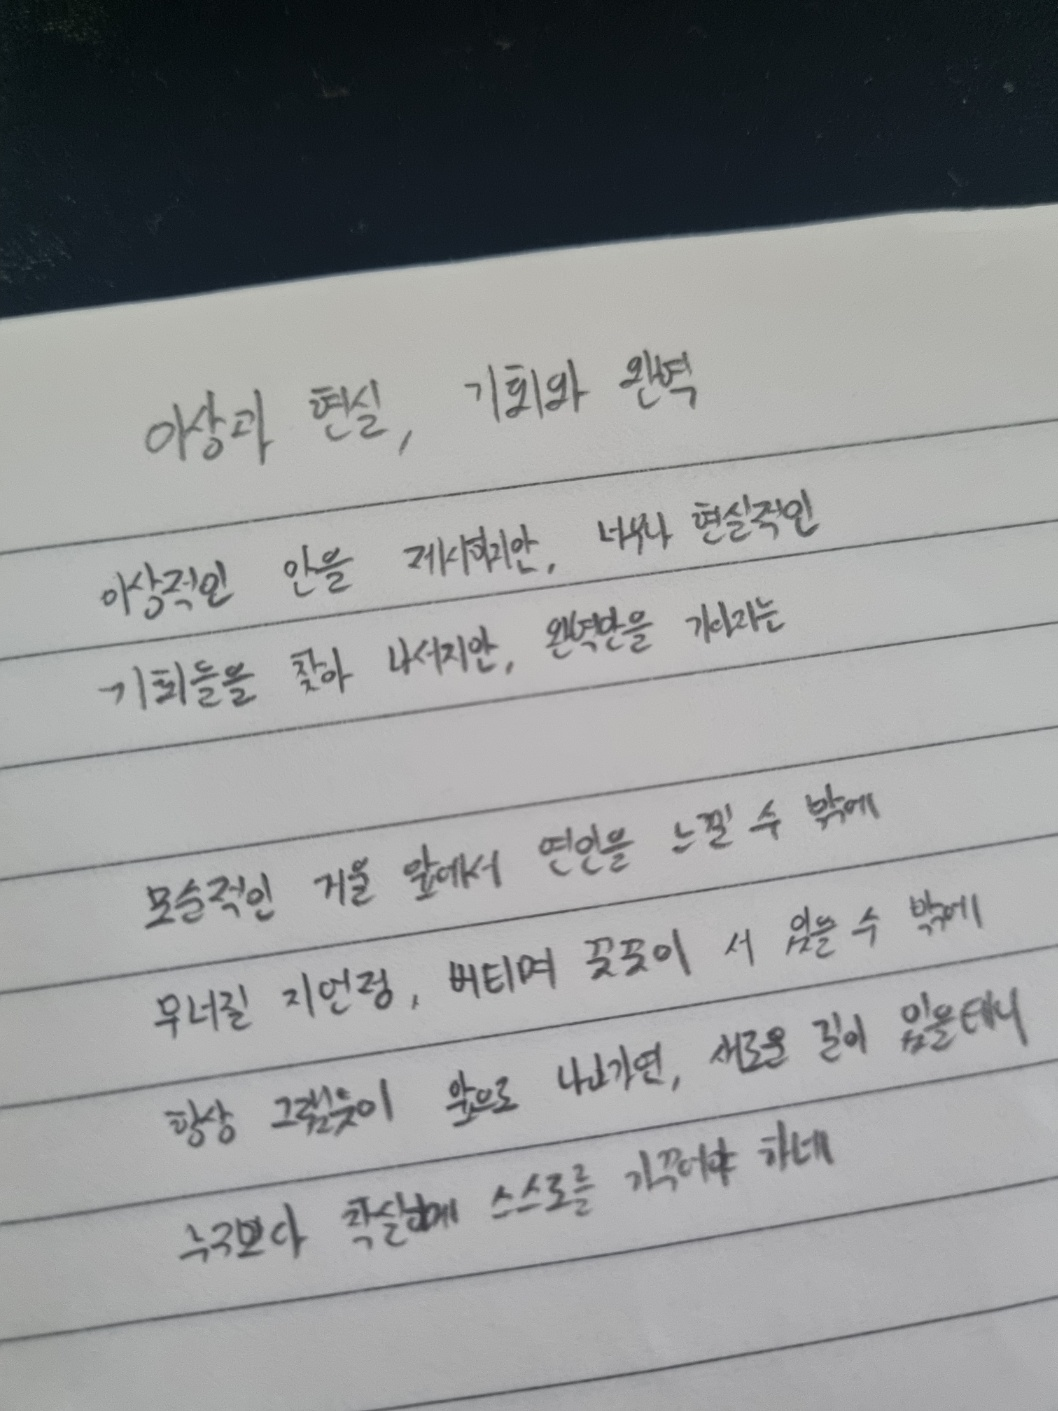 이상과 현실, 기회와 완벽
이상적인 안을 제시하지만, 너무나 현실적인
기회들을 찾아 나서지만, 완벽만을 기다리는
모순적인 거울 앞에서 연인을 느낄 수 밖에
무너질 지언정, 버티며 꽃꽃이 서 있을 수 밖에
항상 그랬듯이 앞으로 나아가면, 새로운 길이 있을테니
누구보다 착실하게 스스로를 가꾸어야 하네